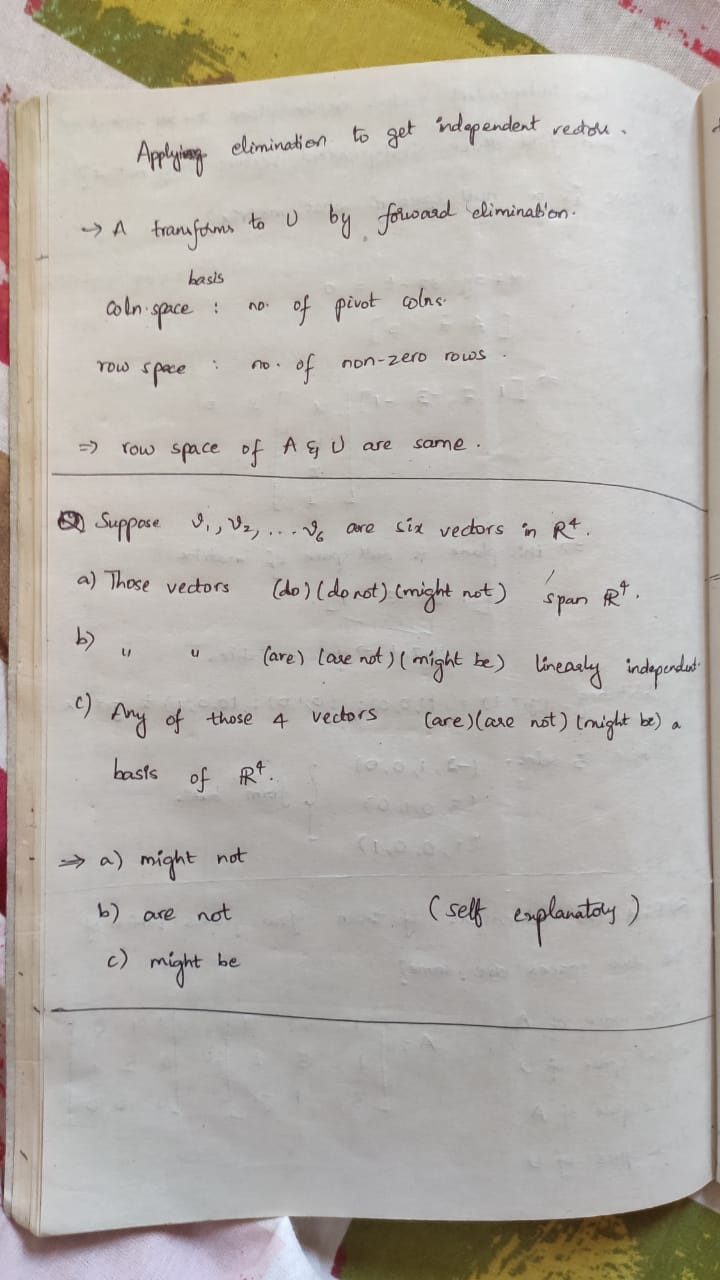 Applying elimination to get independent vectors.
→ A transforms to U by forward elimination.
basis
coln. space : no. of pivot colns.
row space : no. of non-zero rows.
⇒ row space of A & U are same.
Q Suppose v₁, v₂, ... v₆ are six vectors in ℝ⁴.
a) Those vectors (do) (do not) (might not) span ℝ⁴.
b) " " (are) (are not) (might be) linearly independent
c) Any of those 4 vectors (are) (are not) (might be) a
basis of ℝ⁴.
⇒ a) might not
b) are not (self explanatory)
c) might be